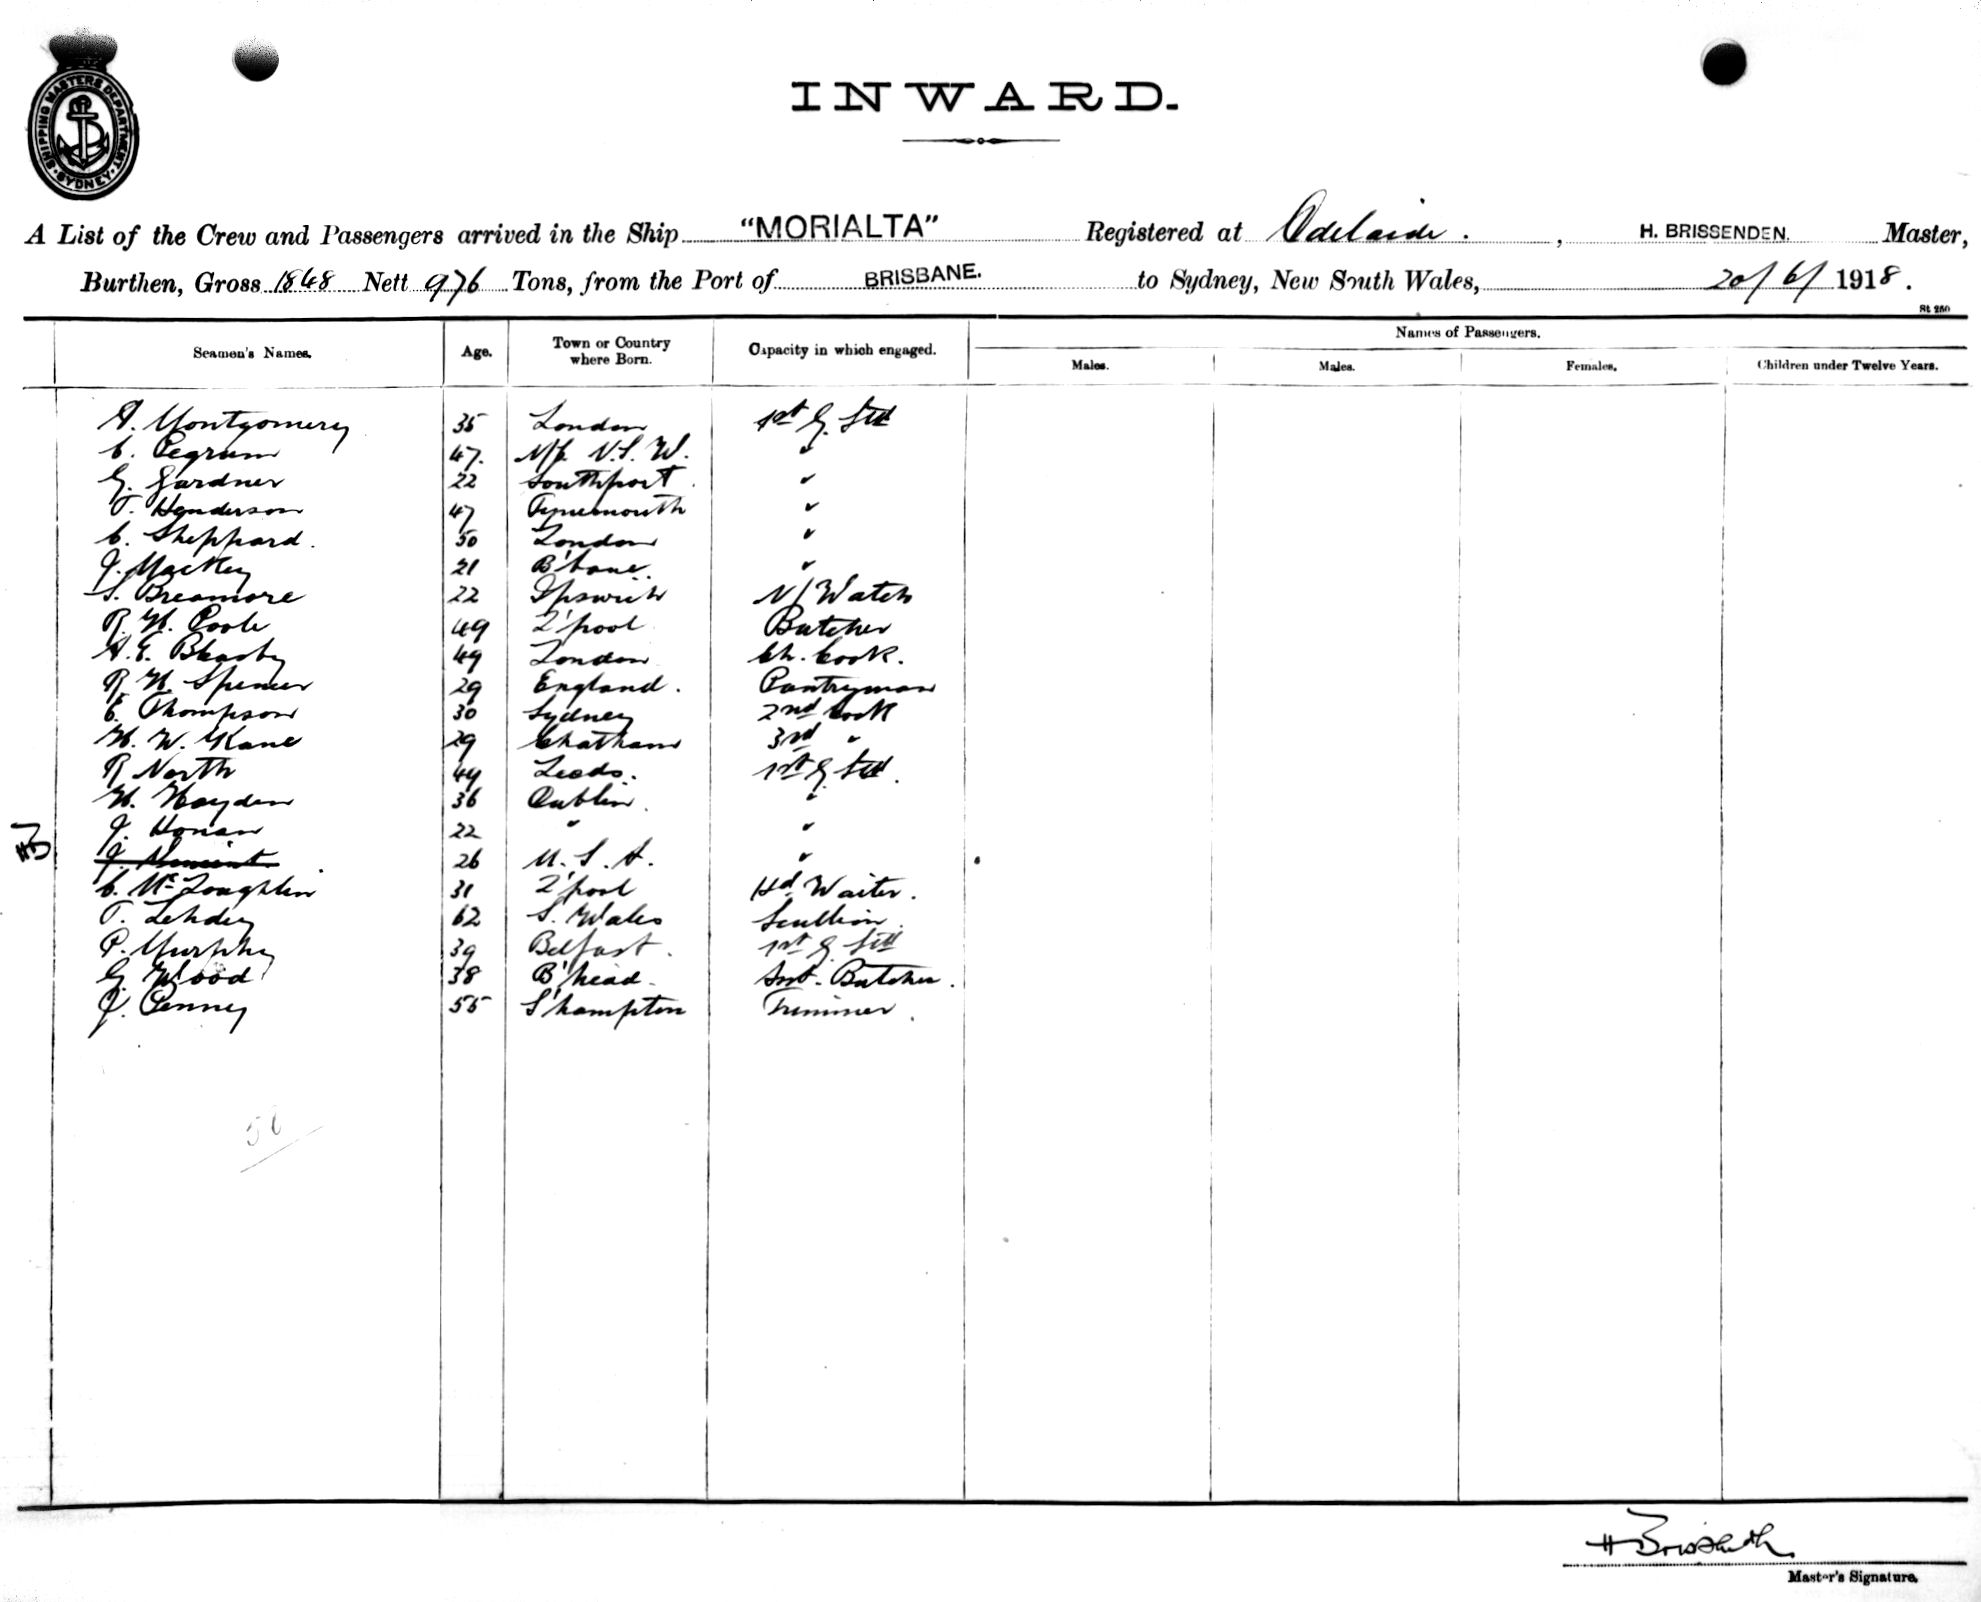 SHIPPING MASTERS DEPARTMENT SYDNEY
INWARD.
A List of the Crew and Passengers arrived in the Ship "MORIALTA" Registered at Adelaide. , H. BRISSENDEN. Master,
Burthen, Gross 1848 Nett 976 Tons, from the Port of BRISBANE. to Sydney, New South Wales, 20/6/1918.
St 250
Seamen's Names. Age. Town or Country where Born. Capacity in which engaged. Names of Passengers.
Males. Males. Females. Children under Twelve Years.
A. Montgomery 35 London 1st G. Std
C. Pegrum 47. N.S.W. "
G. Gardner 22 Southport. "
T. Henderson 47 Tynemouth "
C. Sheppard. 50 London "
J. Mackey 21 B'bane. "
S. Breamore 22 Ipswich N/Watch
R. H. Poole 49 L'pool Butcher
A. E. Blasby 49 London Ch. Cook.
R. H. Spencer 29 England. Pantryman
E. Thompson 30 Sydney 2nd Cook
H. W. Kane 29 Chatham 3rd "
R North 49 Leeds. 1st G. Std.
H. Hayden 36 Dublin. "
J. Honan 22 " "
J. Vincent 26 U.S.A. "
C. McLoughlin 31 L'pool Hd Waiter.
T. Lehdey 62 S. Wales Scullion
P. Murphy 39 Belfast. 1st G. Std
G. Wood 38 B'head. Asst. Butcher.
J. Penney 55 S'hampton Trimmer.
H Brissenden
Master's Signature.